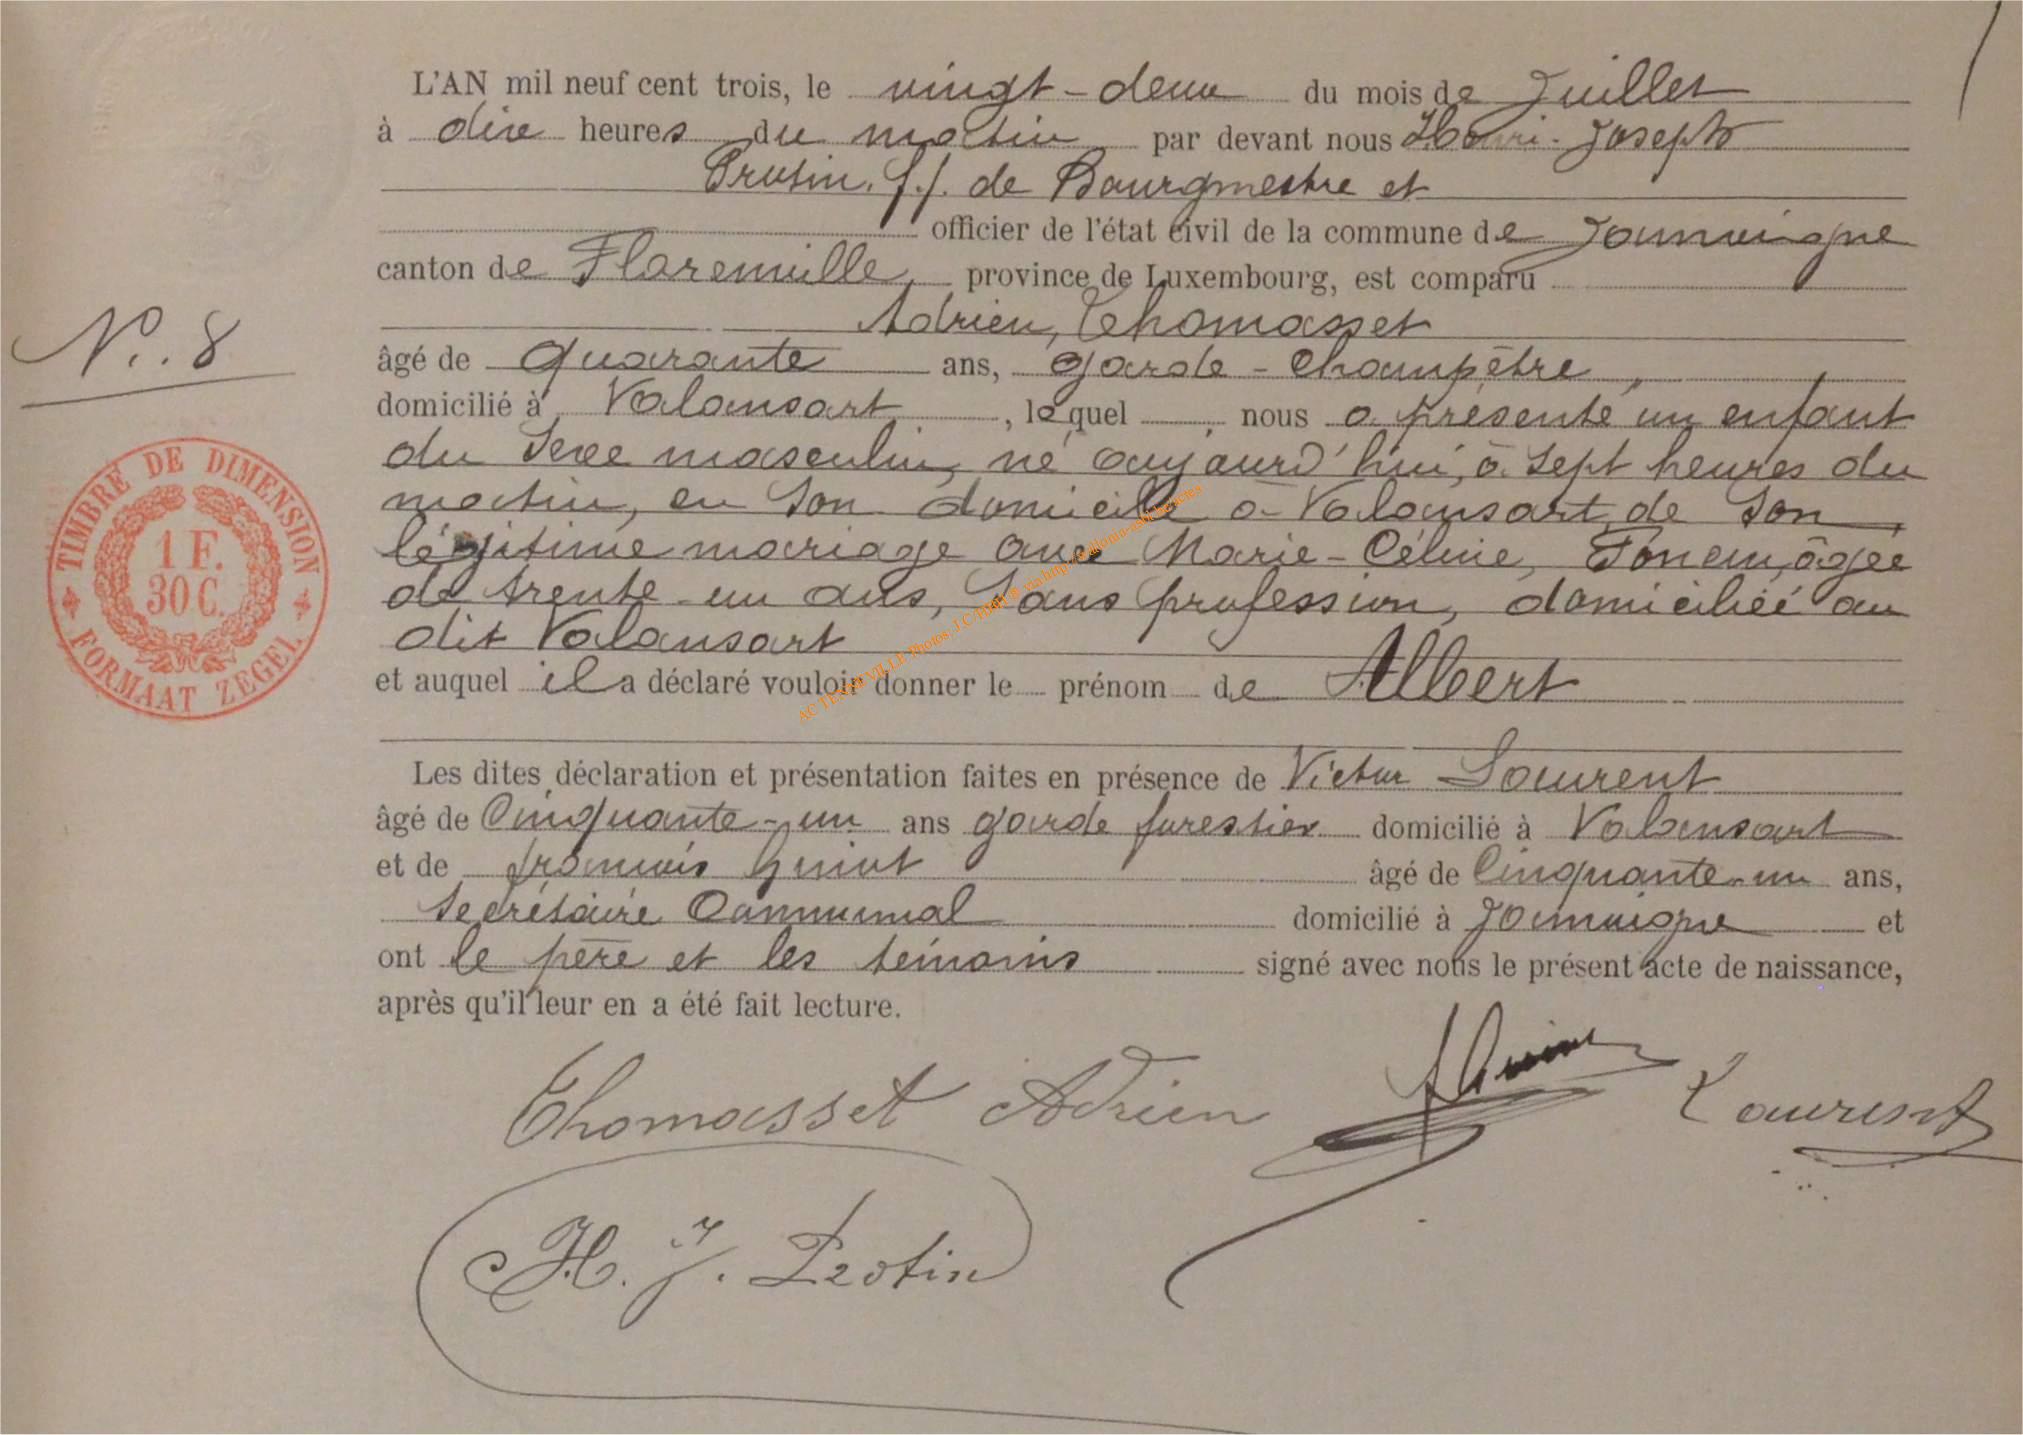 L'AN mil neuf cent trois, le vingt-deux du mois de Juillet
à dix heures du matin par devant nous Henri-Joseph
Protin, f.f. de Bourgmestre et
officier de l'état civil de la commune de Jamoigne
canton de Florenville, province de Luxembourg, est comparu
Adrien, Thomasset
âgé de quarante ans, garde-champêtre,
N°. 8
domicilié à Valansart, lequel, nous a présenté un enfant
du sexe masculin, né aujourd'hui, à sept heures du
matin, en son domicile à Valansart, de son
légitime mariage avec Marie-Céline, âgée
de trente-un ans, sans profession, domiciliée au
dit Valansart
et auquel il a déclaré vouloir donner le prénom de Albert
TIMBRE DE DIMENSION
1 F.
30 C.
FORMAAT ZEGEL
AC TENNEVILLE Photos, J.C. via http://
Les dites déclaration et présentation faites en présence de Victor Laurent
âgé de cinquante-un ans garde forestier domicilié à Valansart
et de François Guiot âgé de cinquante-un ans,
secrétaire communal domicilié à Jamoigne et
ont le père et les témoins signé avec nous le présent acte de naissance,
après qu'il leur en a été fait lecture.
Thomasset Adrien Laurent
H. J. Protin